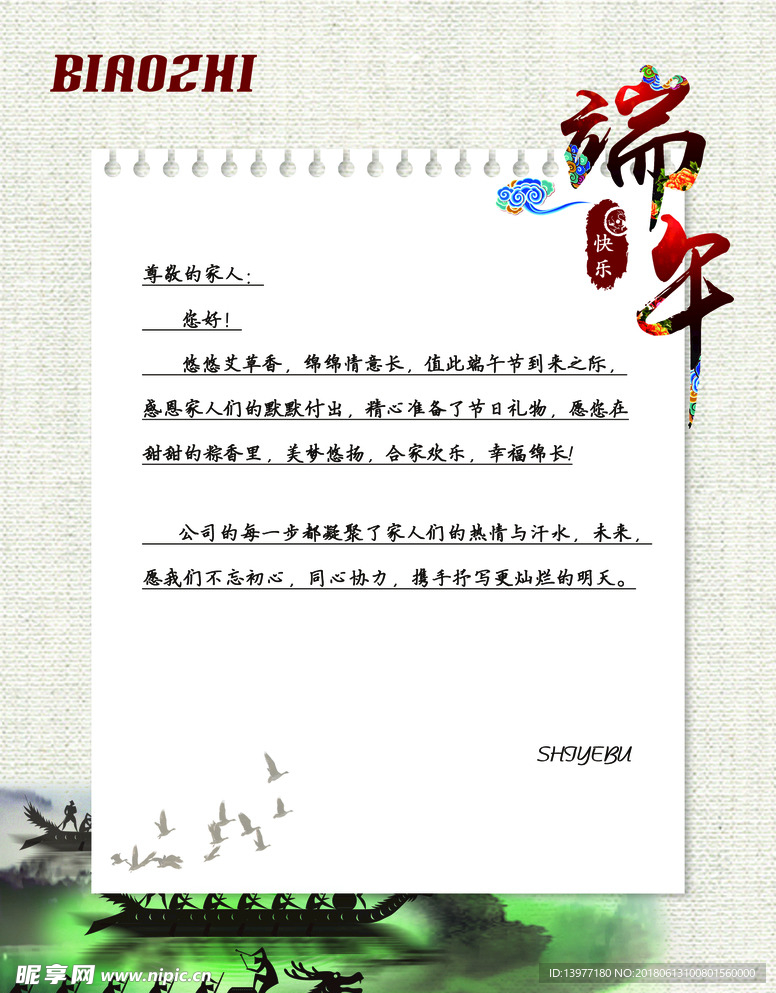 BIAOZHI
端午
快乐
尊敬的家人：
您好！
悠悠艾草香，绵绵情意长，值此端午节到来之际，
感恩家人们的默默付出，精心准备了节日礼物，愿您在
甜甜的粽香里，美梦悠扬，合家欢乐，幸福绵长！
公司的每一步都凝聚了家人们的热情与汗水，未来，
愿我们不忘初心，同心协力，携手抒写更灿烂的明天。
SHIYEBU
昵享网 www.nipic.cn
ID:13977180 NO:20180613100801560000